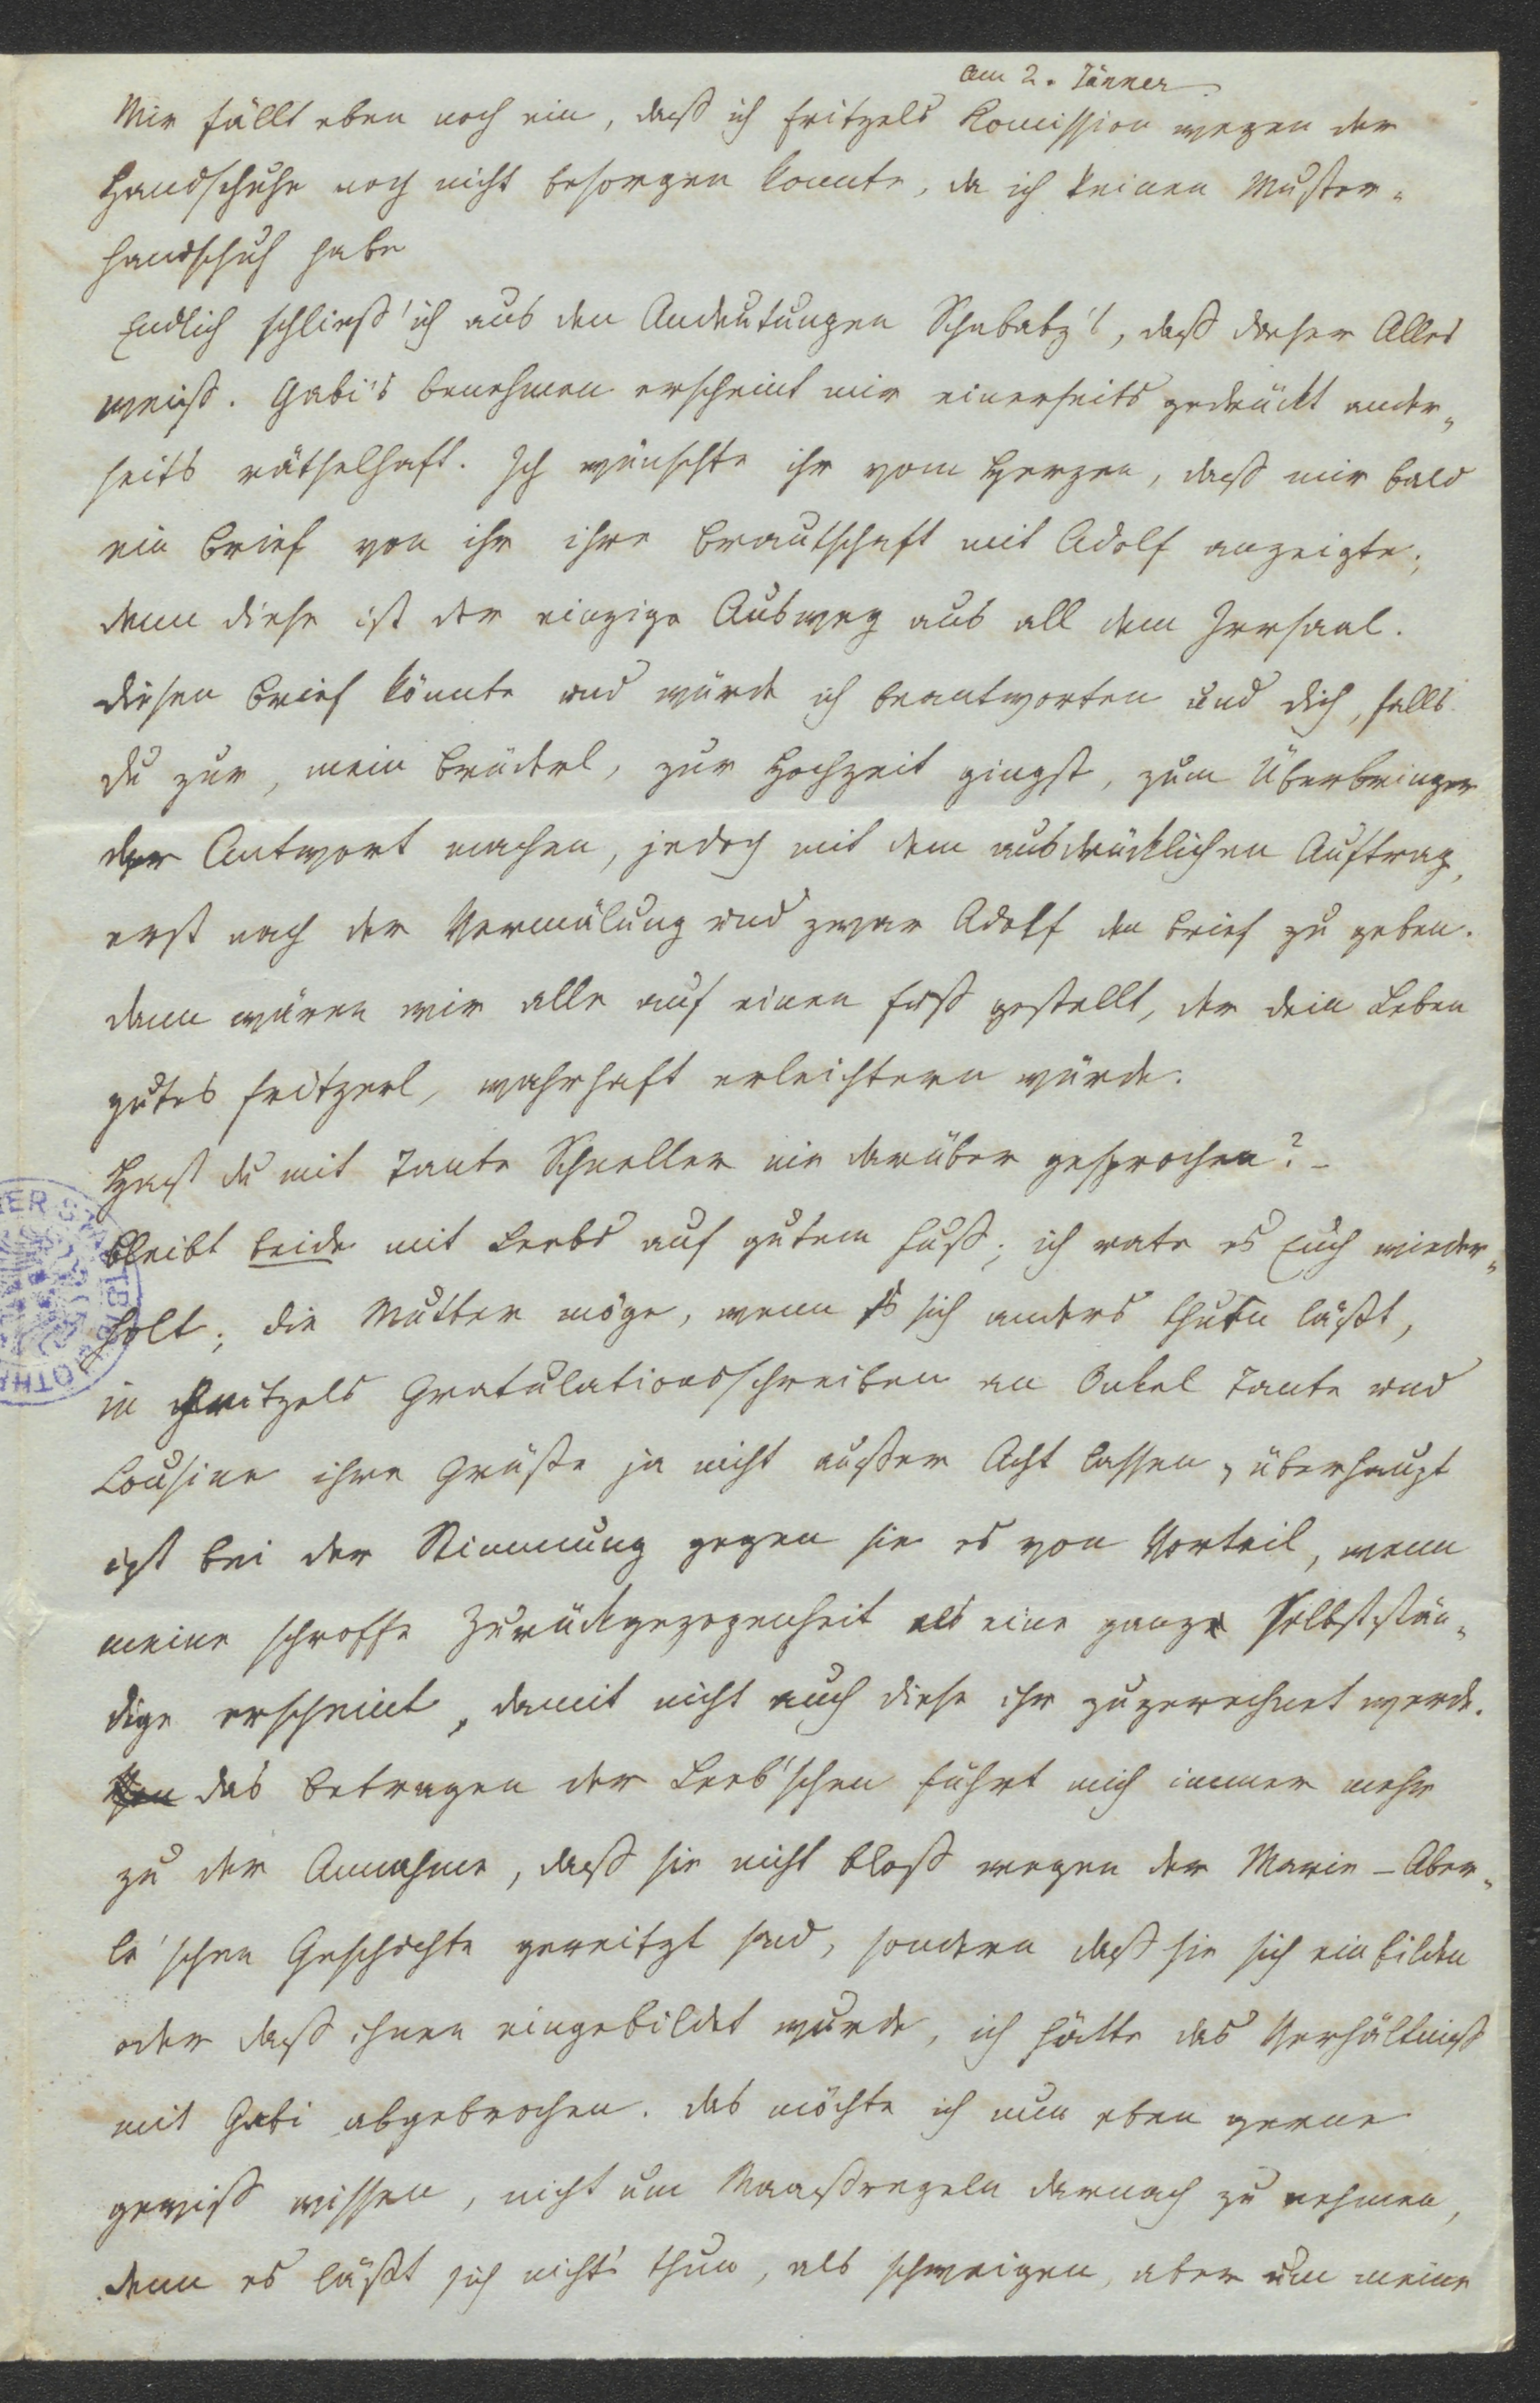 am 2. Jänner
Mir fällt eben noch ein, daß ich Fritzels Komission wegen der
Handschuhe noch nicht besorgen konnte, da ich keinen Muster-
handschuh habe
Endlich schließ' ich aus den Andeutungen, daß dieser Alles
weiß. Gabi's Benehmen erscheint mir einerseits gedrückt ander-
seits räthselhaft. Ich wünschte ihr vom Herzen, daß mir bald
ein Brief von ihr ihre Brautschaft mit Adolf anzeigte;
denn diese ist der einzige Ausweg aus all dem Irrsaal.
Diesen Brief könnte und würde ich beantworten und dich, falls
du zur, mein Brüderl, zur Hochzeit gingst, zum Überbringer
der Antwort machen, jedoch mit dem ausdrücklichen Auftrag,
erst nach der Vermälung und zwar Adolf den Brief zu geben.
Dann wären wir alle auf einen Fuß gestellt, der dein Leben
gutes Fritzerl, wahrhaft erleichtern würde.
Hast du mit Tante Schneller nie darüber gesprochen? –
Bleibt beide mit Leebs auf gutem Fuß; ich rate es Euch wieder-
holt; die Mutter möge, wenn es sich anders thun läßt,
in Fritzels Gratulationsschreiben an Onkel Tante und
Cousine ihre Grüße ja nicht außer Acht lassen, überhaupt
ist bei der Stimmung gegen sie es von Vorteil, wenn
meine schroffe Zurückgezogenheit als eine ganz selbststän-
dige erscheint, damit nicht auch diese ihr zugerechnet werde.
Das Betragen der Leeb'schen führt mich immer mehr
zu der Annahme, daß sie nicht bloß wegen der Marie-Aber-
le'schen Geschichte gereitzt sind, sondern daß sie sich einbilden
oder daß ihnen eingebildet wurde, ich hätte das Verhältniß
mit Gabi abgebrochen. Das möchte ich nun eben gerne
gewiß wissen, nicht um Maaßregeln darnach zu nehmen,
denn es läßt sich nichts thun, als schweigen, aber um meine